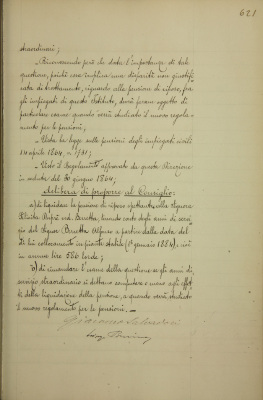 621
straordinari;
- Riconoscendo però che data l'importanza di tale
questione, poichè essa implica una disparità non giustifi-
cata di trattamento, riguardo alle pensioni di riposo, fra
gli impiegati di questo Istituto, dovrà formare oggetto di
particolare esame quando verrà studiato il nuovo regola-
mento per le pensioni;
- Vista la legge sulle pensioni degli impiegati civili
14 aprile 1864, n. 1731;
- Visto il Regolamento approvato da questa Direzione
in seduta del giugno 1864;
Delibera di proporre al Consiglio:
a) di liquidare la pensione di riposo spettante alla Signora
ved. Beretta, tenendo conto degli anni di servi-
zio del Signor Beretta a partire dalla data del
di lui collocamento in pianta stabile (1° gennaio 1884) e cioè
in annue lire 586 lorde;
b) di rimandare l'esame della questione se gli anni di
servizio straordinario si debbano computare o meno agli effet-
ti della liquidazione della pensione, a quando verrà studiato
il nuovo regolamento per le pensioni. -
Giacomo